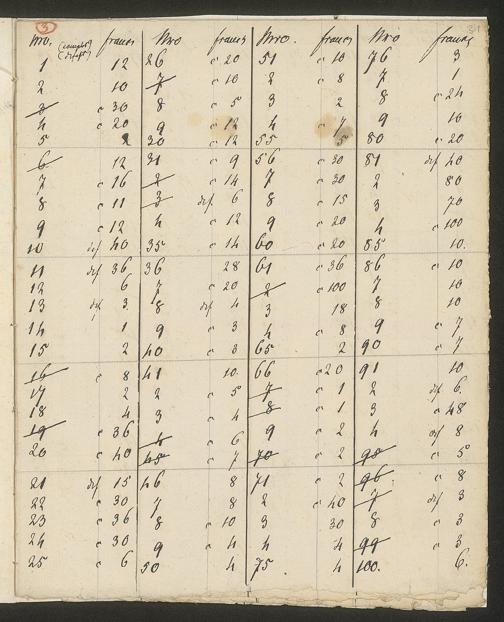 3
Nro. (compl.) (deft) francs Nro francs Nro. francs Nro francs
1 12 26 c 20 51 c 10 76 3
2 10 7 c 10 2 c 8 7 1
3 c 30 8 c 5 3 2 8 c 24
4 c 20 9 c 12 4 c 7 9 10
5 2 30 c 12 55 5 80 c 20
6 12 31 c 9 56 c 30 81 def 40
7 c 16 2 c 14 7 c 30 2 80
8 c 11 3 def 6 8 c 15 3 70
9 c 12 4 c 12 9 c 20 4 c 100
10 def 40 35 c 14 60 c 20 85 10.
11 def 36 36 28 61 c 36 86 c 10
12 6 7 c 20 2 c 100 7 10
13 def 3. 8 def 4 3 18 8 10
14 1 9 c 3 4 c 8 9 c 7
15 2 40 c 3 65 2 90 c 7
16 c 8 41 10. 66 c 20 91 10
17 2 2 c 5 7 c 1 2 def 6.
18 4 3 c 4 8 c 1 3 c 48
19 c 36 4 c 6 9 c 2 4 def 8
20 c 40 45 c 7 70 c 2 95 c 5
21 def 15 46 8 71 c 2 96 c 8
22 c 30 7 8 2 c 40 7 def 3
23 c 36 8 c 10 3 30 8 c 3
24 c 30 9 c 4 4 4 99 c 3
25 c 6 50 4 75 4 100. 6.